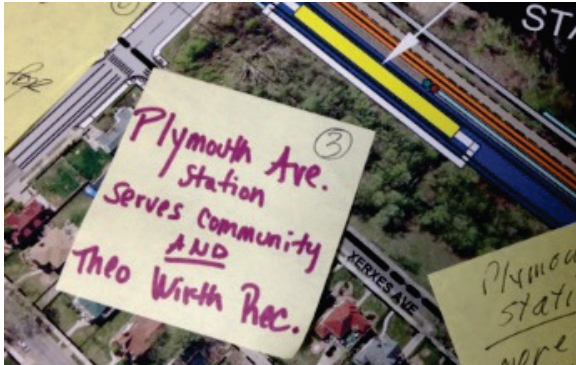 STA
③
Plymouth Ave.
Station
serves community
AND
Theo Wirth Rec.
XERXES AVE
Plymou
stati